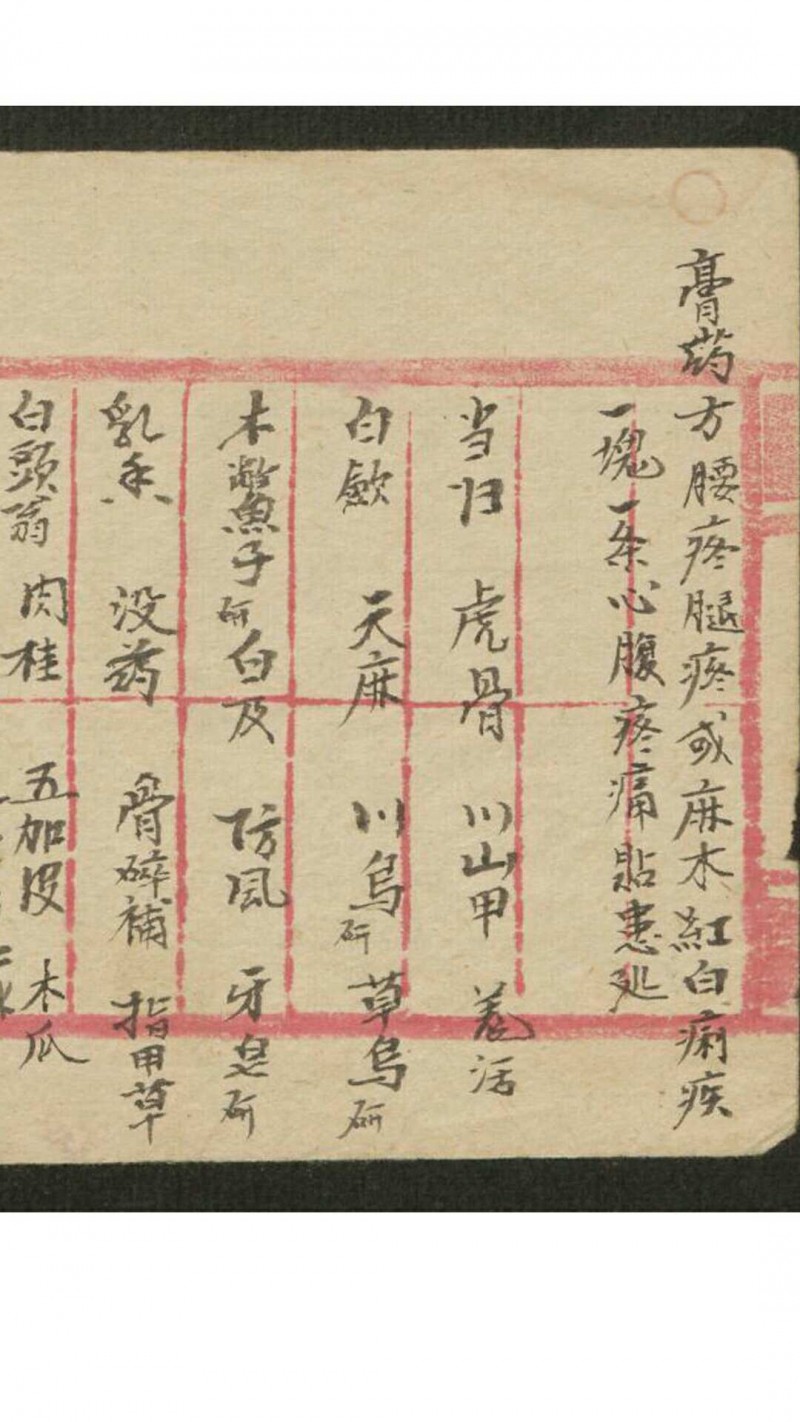 膏药方腰疼腿疼或麻木紅白痢疾
一塊一条心腹疼痛貼患处
当归 虎骨 川山甲 羌活
白歛 天麻 川烏研 草烏研
木鱉子研 白及 防風 牙皂研
乳香 没药 骨碎補 指甲草
白頭翁 肉桂 五加皮 木瓜